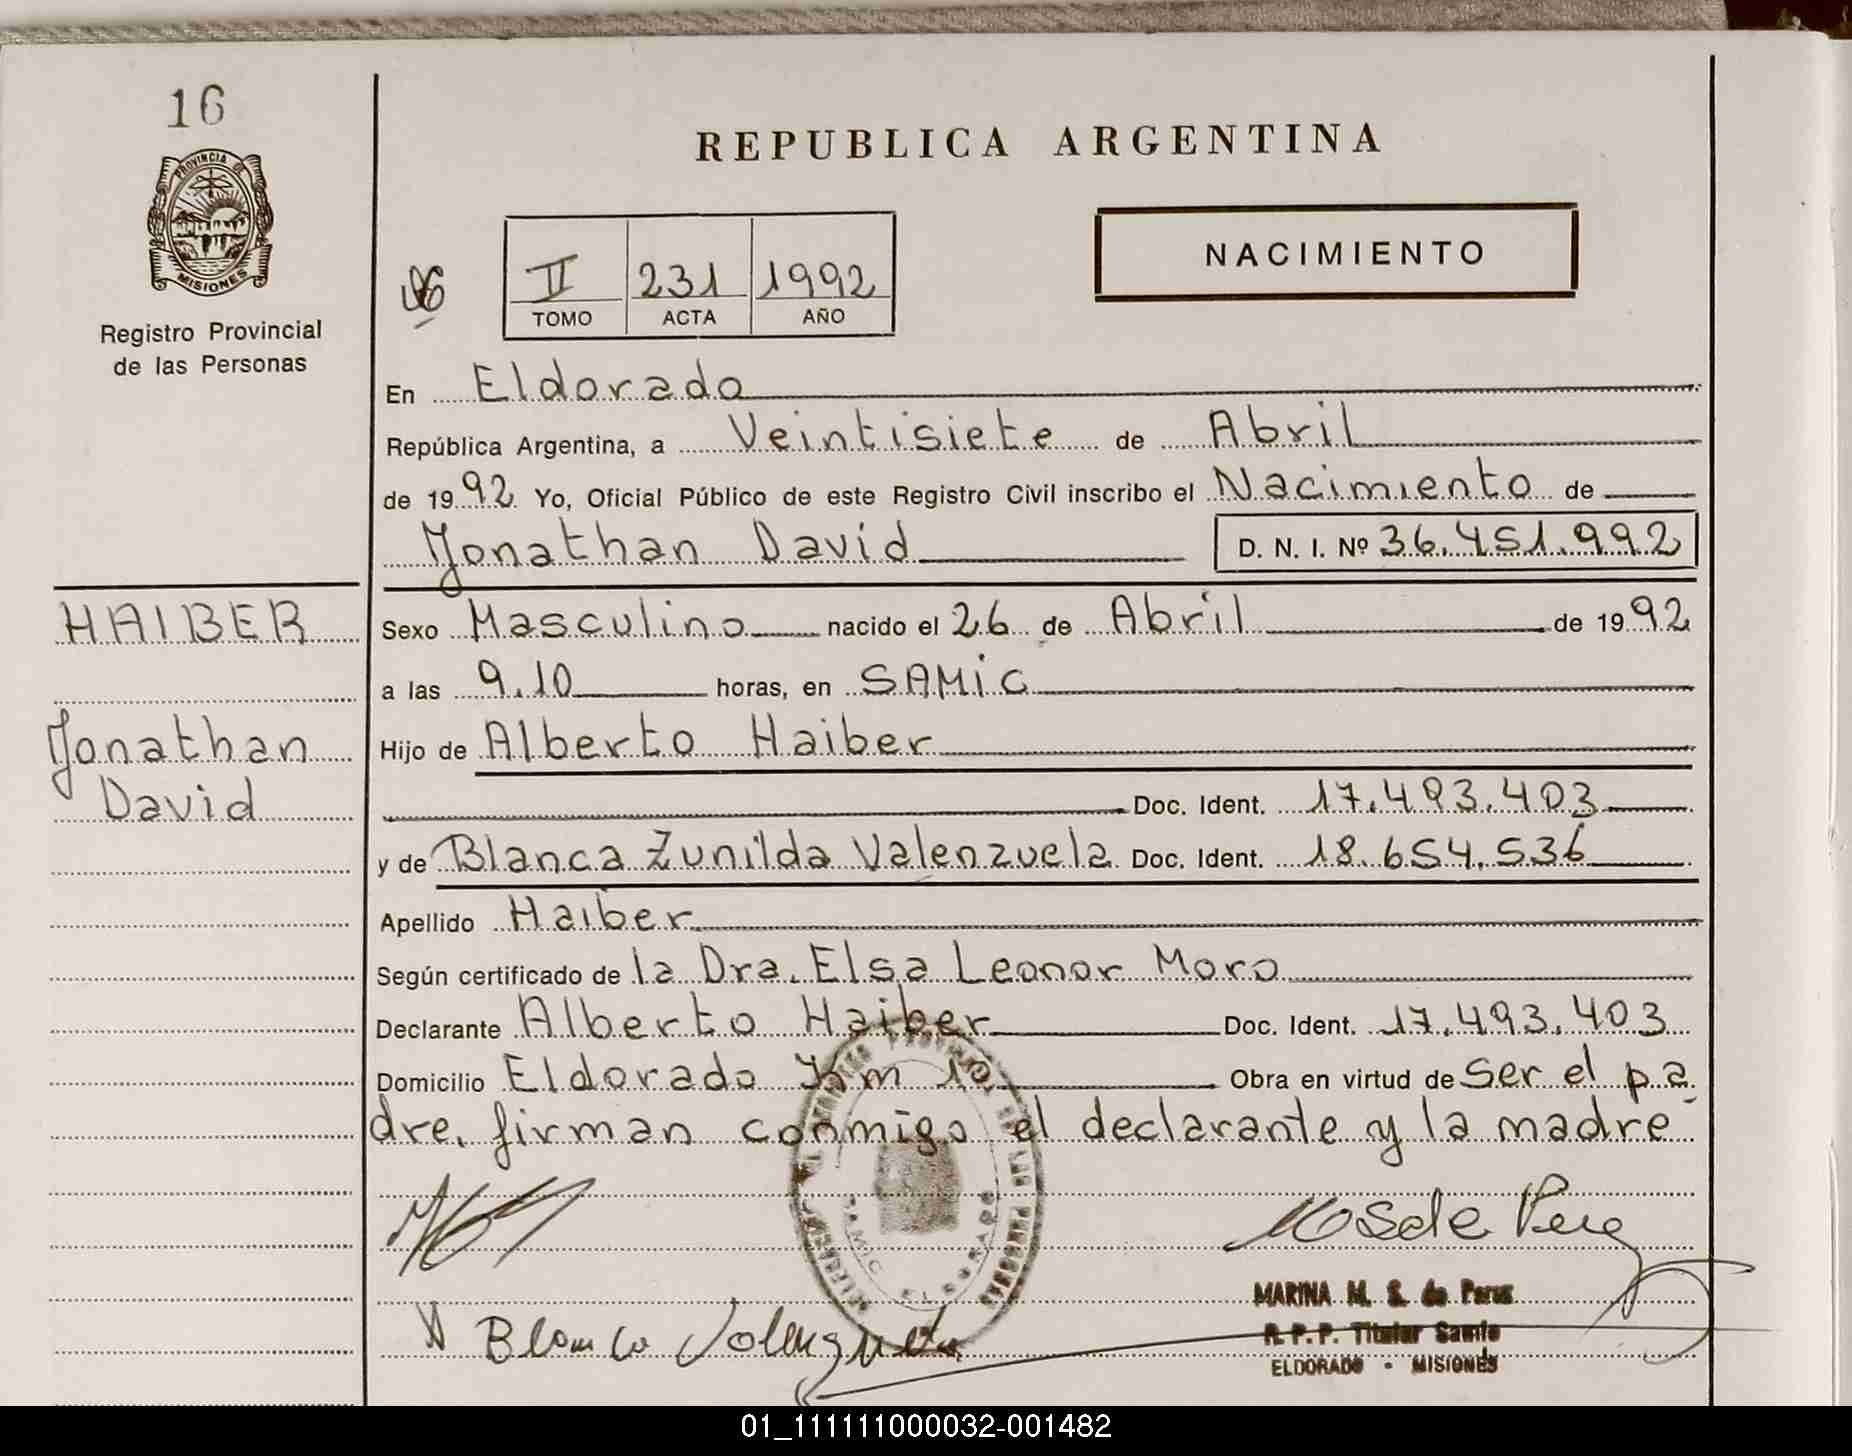 16
PROVINCIA DE
MISIONES
Registro Provincial
de las Personas
REPUBLICA ARGENTINA
NACIMIENTO
II 231 1992
TOMO ACTA AÑO
En Eldorado
República Argentina, a Veintisiete de Abril
de 1992 Yo, Oficial Público de este Registro Civil inscribo el Nacimiento de
Jonathan David D. N. I. Nº 36.451.992
HAIBER
Jonathan
David
Sexo Masculino nacido el 26 de Abril de 1992
a las 9.10 horas, en SAMiC
Hijo de Alberto Haiber
Doc. Ident. 17.493.403
y de Blanca Zunilda Valenzuela Doc. Ident. 18.654.536
Apellido Haiber
Según certificado de la Dra. Elsa Leonor Moro
Declarante Alberto Haiber Doc. Ident. 17.493.403
Domicilio Eldorado Km 10 Obra en virtud de Ser el pa
dre. firman conmigo el declarante y la madre
SAMIC ELDORADO
Blanca Valenzuela
MARINA M. S. de Perez
R.P.P. Titular Samic
ELDORADO - MISIONES
01_111111000032-001482